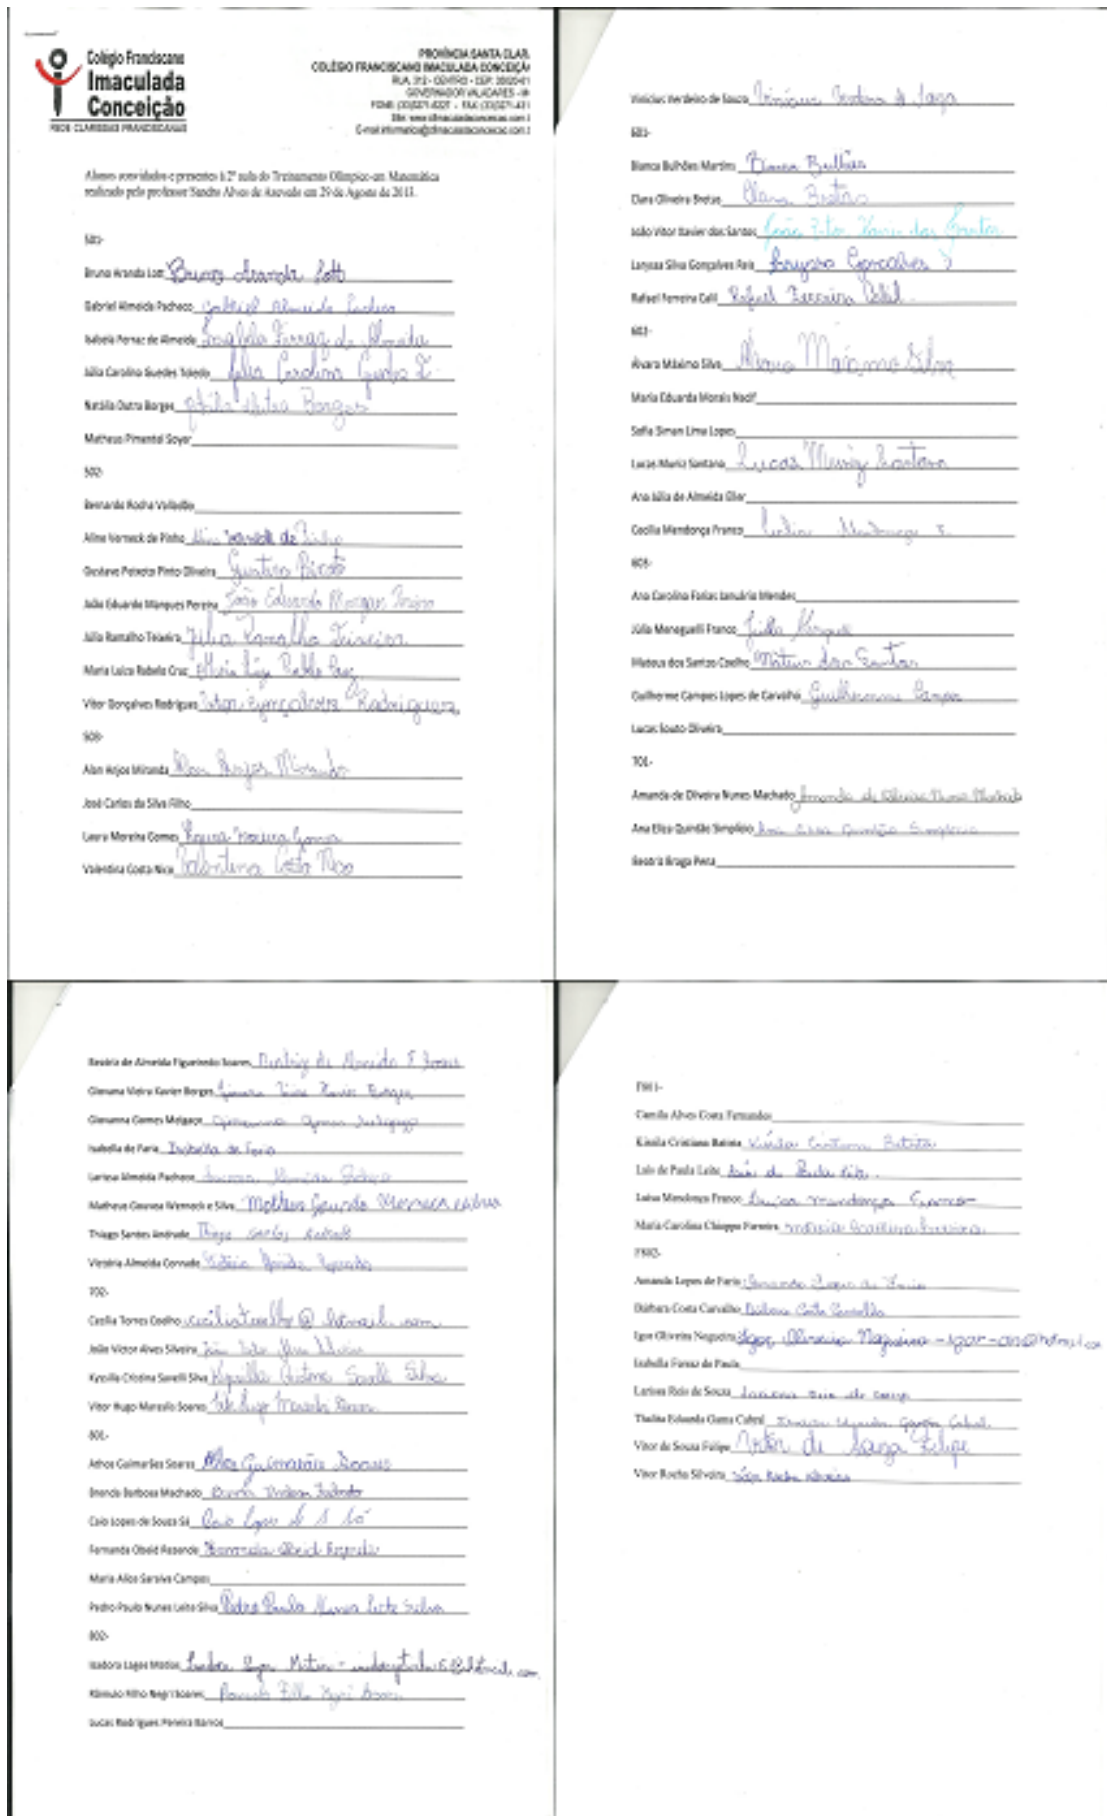 Colégio Franciscano
Imaculada
Conceição
REDE CLARISSAS FRANCISCANAS
PROVÍNCIA SANTA CLARA
COLÉGIO FRANCISCANO IMACULADA CONCEIÇÃ
Alunos convidados e presentes à 2ª aula do Treinamento Olímpico em Matemática
realizado pelo professor Sandro Alves de Azevedo em 29 de Agosto de
501-
Bruno Aranda Lott Bruno Aranda Lott
Gabriel Almeida Pacheco Gabriel Almeida Pacheco
Isabela Ferraz de Almeida Isabela Ferraz de Almeida
Júlia Carolina Guedes Toledo Júlia Carolina Guedes T.
Natália Dutra Borges Natália Dutra Borges
Matheus Pimentel Soyer
502-
Bernardo Rocha Valladão
Aline Werneck de Pinho Aline Werneck de Pinho
Gustavo Peixoto Pinto Oliveira Gustavo Peixoto
João Eduardo Marques Pereira João Eduardo Marques Pereira
Júlia Ramalho Teixeira Júlia Ramalho Teixeira
Maria Luiza Rabelo Cruz Maria Luiza Rabelo Cruz
Vitor Gonçalves Rodrigues Vitor Gonçalves Rodrigues
503-
Alan Anjos Miranda Alan Anjos Miranda
José Carlos da Silva Filho
Laura Moreira Gomes Laura Moreira Gomes
Valentina Costa Nico Valentina Costa Nico
Vinícius Verdeiro de Souza Vinícius
601-
Bianca Bulhões Martins Bianca Bulhões
Clara Oliveira Bretas Clara Bretas
João Vitor Xavier dos Santos João Vitor Xavier dos Santos
Laryssa Silva Gonçalves Reis Laryssa Gonçalves
Rafael Ferreira Calil Rafael Ferreira Calil
602-
Álvaro Máximo Silva Álvaro Máximo Silva
Maria Eduarda Morais Nacif
Sofia Siman Lima Lopes
Lucas Muniz Santana Lucas Muniz Santana
Ana Júlia de Almeida Eller
Cecília Mendonça Franco Cecília Mendonça F.
603-
Ana Carolina Farias Januário Mendes
Júlia Meneguelli Franco Júlia
Mateus dos Santos Coelho Mateus dos Santos
Guilherme Campos Lopes de Carvalho Guilherme Campos
Lucas Souto Oliveira
701-
Amanda de Oliveira Nunes Machado Amanda de Oliveira Nunes Machado
Ana Elisa Quintão Simplício Ana Elisa Quintão Simplício
Beatriz Braga Pena
Beatriz de Almeida Figueiredo Soares Beatriz de Almeida F. Soares
Giovana Vieira Xavier Borges Giovana Vieira Xavier Borges
Giovanna Gomes Melgaço Giovanna Gomes Melgaço
Isabella de Faria Isabella de Faria
Larissa Almeida Pacheco Larissa Almeida Pacheco
Matheus Gouvea Werneck e Silva Matheus Gouvea Werneck e Silva
Thiago Santos Andrade Thiago Santos Andrade
Victória Almeida Conrado Victória Almeida Conrado
702-
Cecília Torres Coelho
João Victor Alves Silveira João Victor Alves Silveira
Kyssilla Cristina Savelli Silva Kyssilla Cristina Savelli Silva
Vitor Hugo Marcelo Soares Vitor Hugo Marcelo Soares
801-
Athos Guimarães Soares Athos Guimarães Soares
Brenda Barbosa Machado Brenda Barbosa Machado
Caio Lopes de Souza Sá Caio Lopes de S. Sá
Fernanda Obeid Resende Fernanda Obeid Resende
Maria Alice Saraiva Campos
Pedro Paulo Nunes Leite Silva Pedro Paulo Nunes Leite Silva
802-
Isadora Lages Matias Isadora Lages Matias
Rômulo Filho Negri Soares Rômulo Filho Negri Soares
Lucas Rodrigues Pereira Barros
Camila Alves Costa Fernandes
Cristiana Batista Cristiana Batista
Laís de Paula Leite Laís de Paula Leite
Luísa Mendonça Franco Luísa Mendonça Franco
Maria Carolina Chiappe Ferreira Maria Carolina Ferreira
Amanda Lopes de Faria Amanda Lopes de Faria
Bárbara Costa Carvalho Bárbara Costa Carvalho
Igor Oliveira Nogueira Igor Oliveira Nogueira
Isabella Ferraz de Paula
Larissa Reis de Souza Larissa Reis de Souza
Thalita Eduarda Gama Cabral Thalita Eduarda Gama Cabral
Vitor de Souza Felipe Vitor de Souza Felipe
Vitor Rocha Silveira Vitor Rocha Silveira